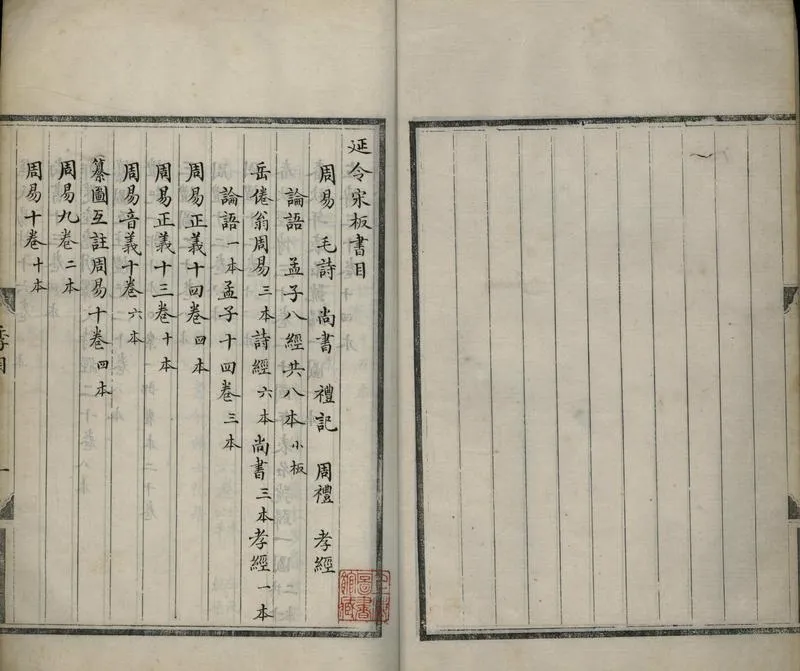 延令宋板書目
周易　毛詩　尚書　禮記　周禮　孝經
論語　孟子八經共八本小板
岳倦翁周易三本詩經六本尚書三本孝經一本
論語一本孟子十四卷三本
周易正義十四卷四本
周易正義十三卷十本
周易音義十卷六本
纂圖互註周易十卷四本
周易九卷二本
周易十卷十本
季目
一